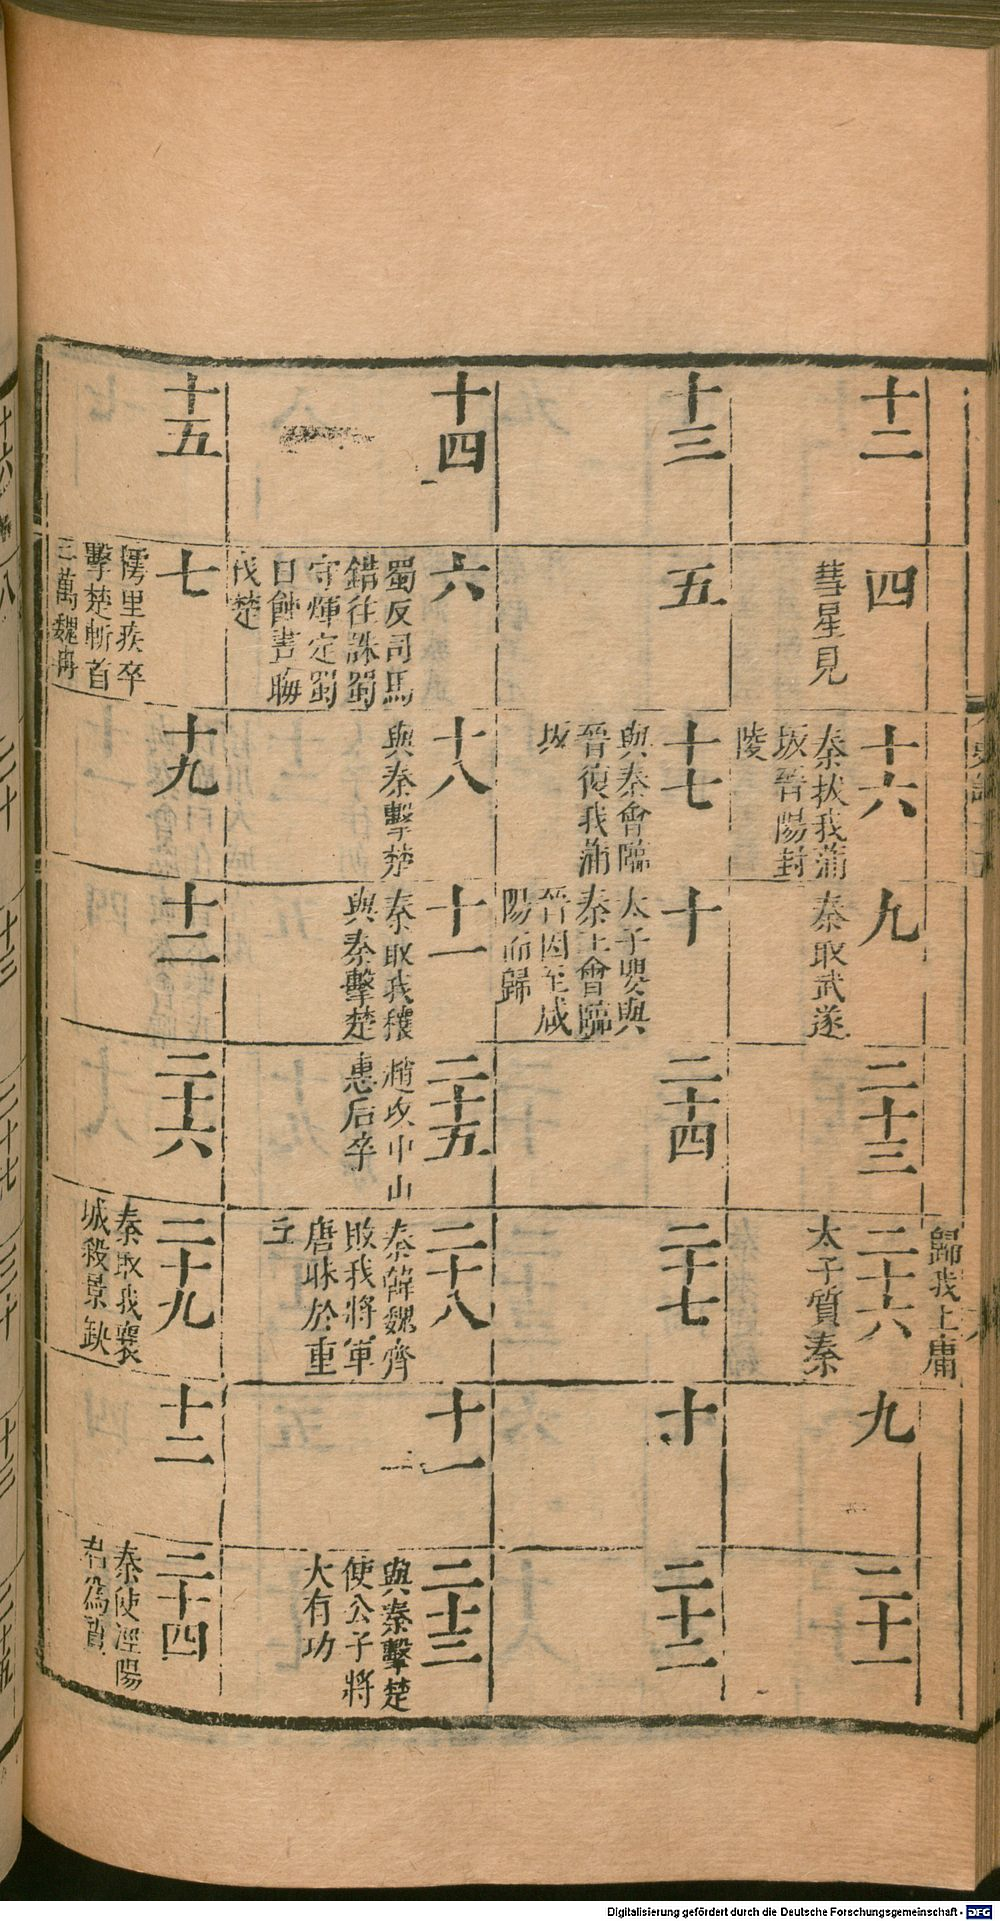 歸我上庸
十二
四
彗星見
十六
秦拔我蒲
坂晉陽封
陵
九
秦取武遂
二十三
二十六
太子質秦
九
二十一
十三
五
十七
與秦會臨
晉復我蒲
坂
十
太子嬰與
秦王會臨
晉因至咸
陽而歸
二十四
二十七
十
二十二
十四
六
蜀反司馬
錯往誅蜀
守煇定蜀
日蝕晝晦
伐楚
十八
與秦擊楚
十一
秦取我穰
與秦擊楚
二十五
趙攻中山
惠后卒
二十八
秦韓魏齊
敗我將軍
唐眛於重
丘
十一
二十三
與秦擊楚
使公子將
大有功
十五
七
樗里疾卒
擊楚斬首
三萬魏冉
十九
十二
二十六
二十九
秦取我襄
城殺景缺
十二
二十四
秦使涇陽
君為質
Digitalisierung gefördert durch die Deutsche Forschungsgemeinschaft - DFG